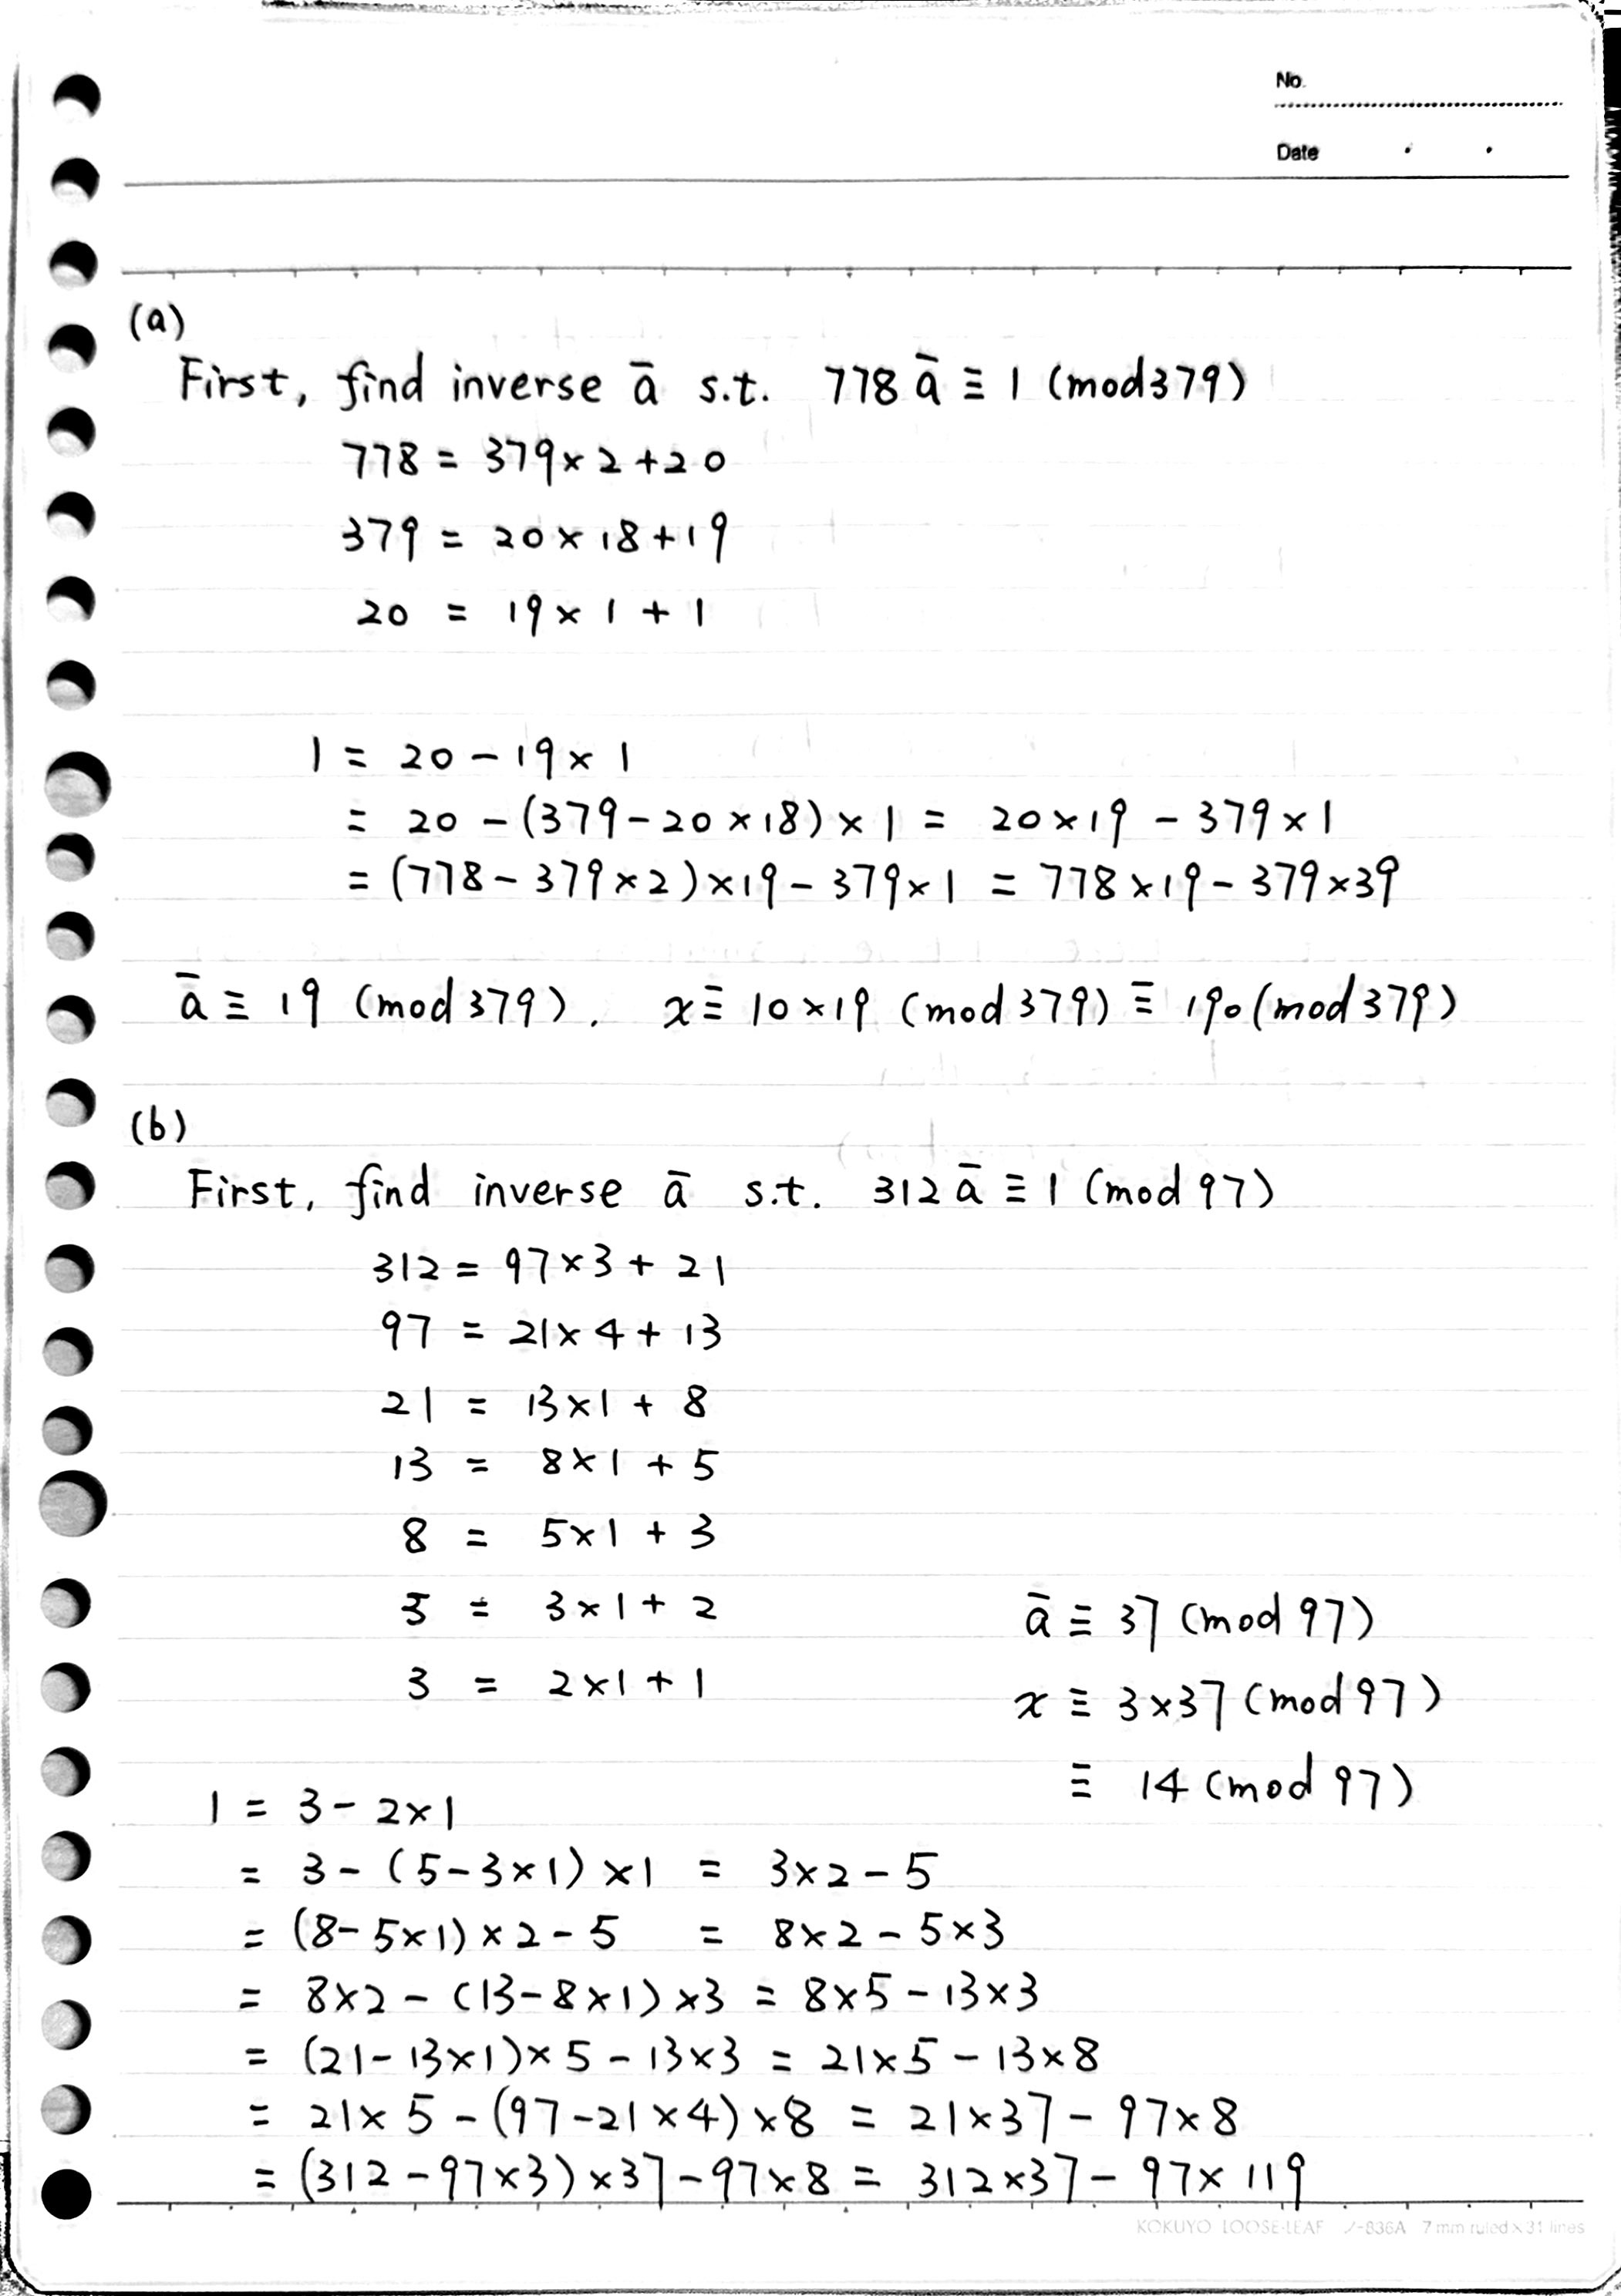 No.
Date . .
(a)
First, find inverse ā s.t. 778 ā ≡ 1 (mod 379)
778 = 379 × 2 + 20
379 = 20 × 18 + 19
20 = 19 × 1 + 1
1 = 20 - 19 × 1
= 20 - (379 - 20 × 18) × 1 = 20 × 19 - 379 × 1
= (778 - 379 × 2) × 19 - 379 × 1 = 778 × 19 - 379 × 39
ā ≡ 19 (mod 379). x ≡ 10 × 19 (mod 379) ≡ 190 (mod 379)
(b)
First, find inverse ā s.t. 312 ā ≡ 1 (mod 97)
312 = 97 × 3 + 21
97 = 21 × 4 + 13
21 = 13 × 1 + 8
13 = 8 × 1 + 5
8 = 5 × 1 + 3
5 = 3 × 1 + 2
3 = 2 × 1 + 1
ā ≡ 37 (mod 97)
x ≡ 3 × 37 (mod 97)
≡ 14 (mod 97)
1 = 3 - 2 × 1
= 3 - (5 - 3 × 1) × 1 = 3 × 2 - 5
= (8 - 5 × 1) × 2 - 5 = 8 × 2 - 5 × 3
= 8 × 2 - (13 - 8 × 1) × 3 = 8 × 5 - 13 × 3
= (21 - 13 × 1) × 5 - 13 × 3 = 21 × 5 - 13 × 8
= 21 × 5 - (97 - 21 × 4) × 8 = 21 × 37 - 97 × 8
= (312 - 97 × 3) × 37 - 97 × 8 = 312 × 37 - 97 × 119
KOKUYO LOOSE-LEAF ノ-836A 7 mm ruled × 31 lines